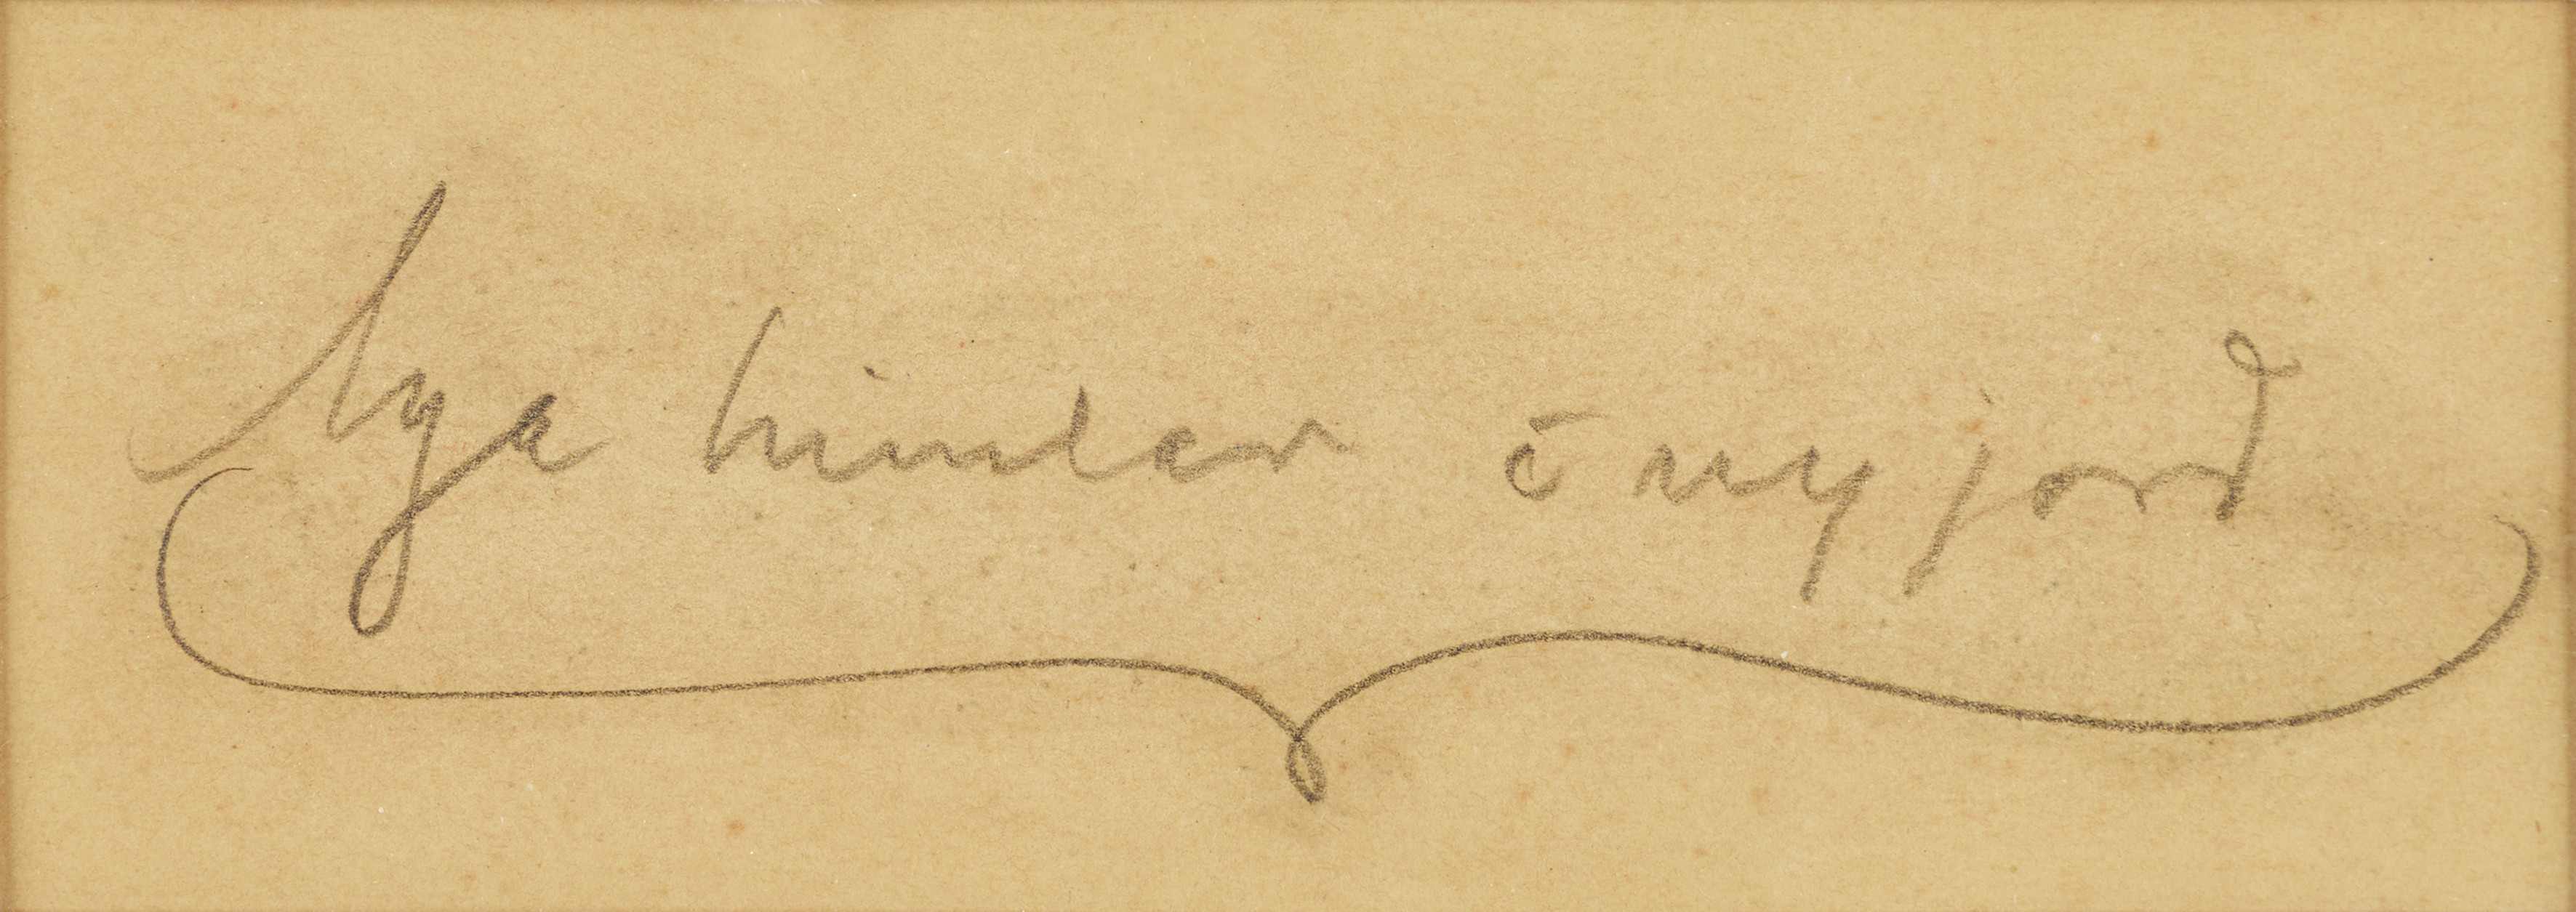 Nya himlar å ny jord